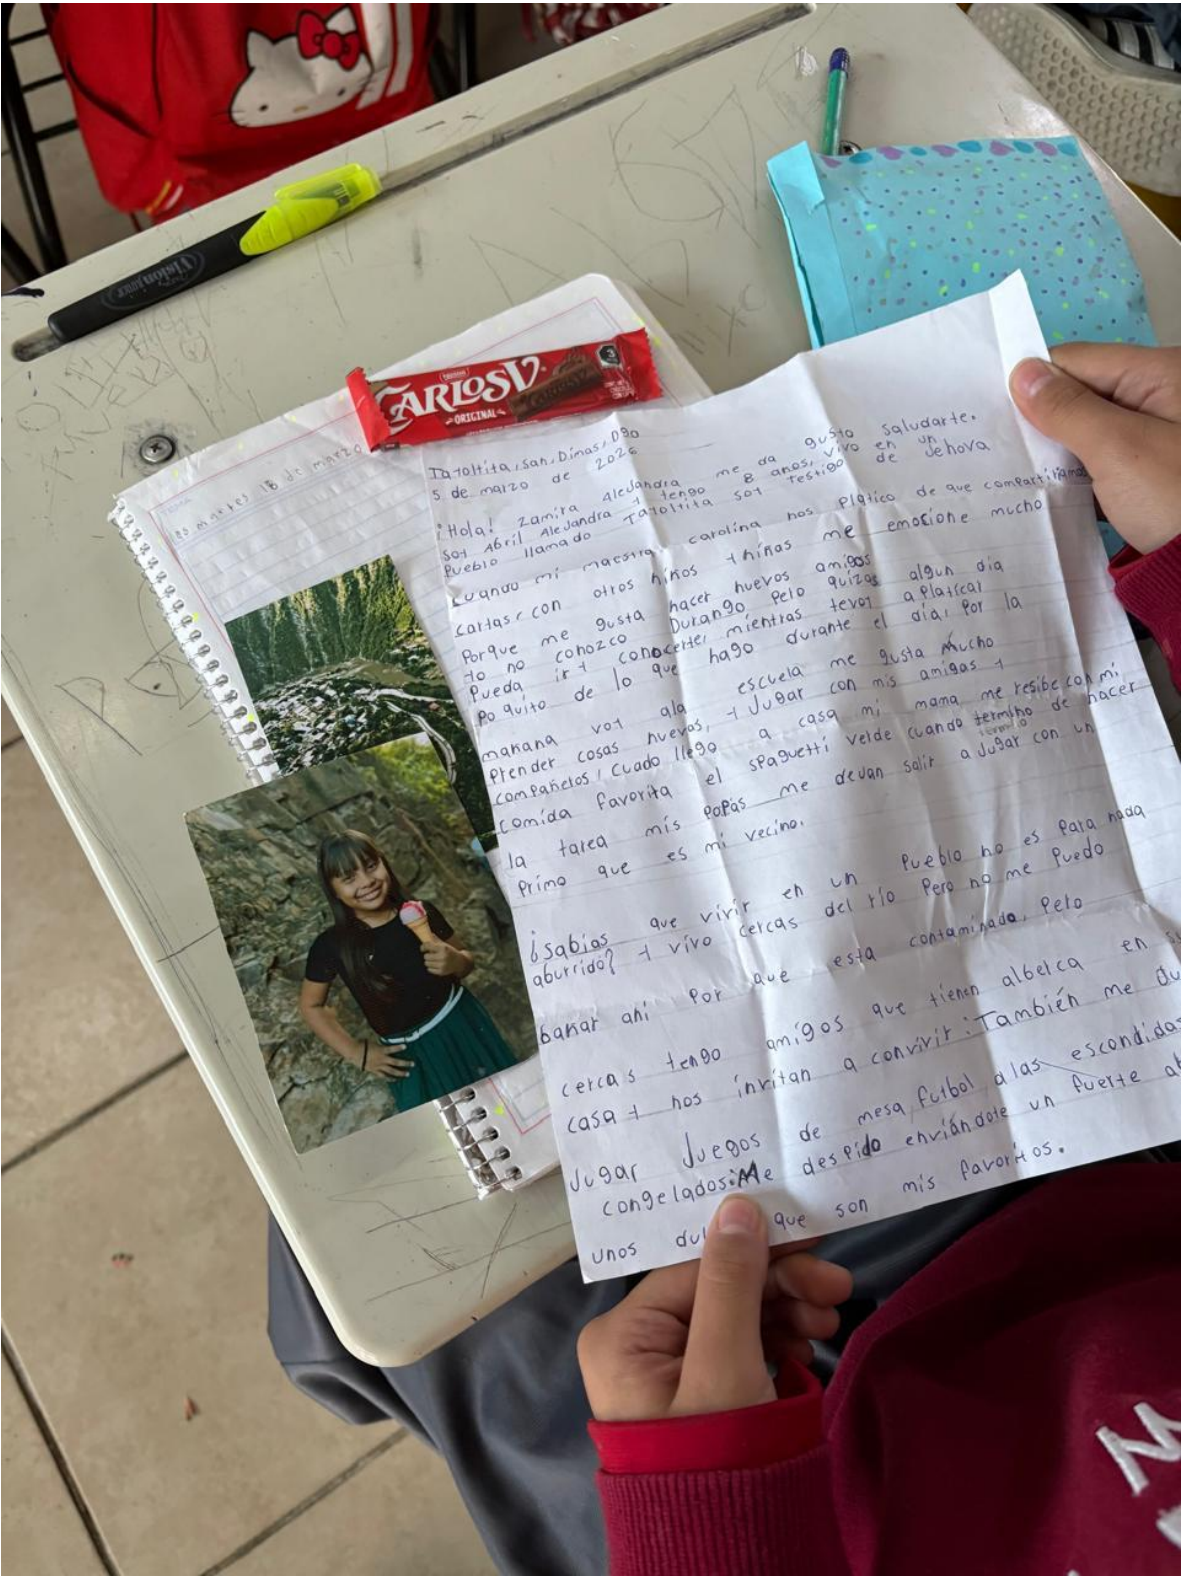 Vision
CARLOS V
ORIGINAL
es martes 18 de marzo
Tayoltita, San, Dimas, Dgo
5 de marzo de 2026
¡Hola! Zamira Alejandra me da gusto saludarte.
soy Abril Alejandra y tengo 8 anos, vivo en un
Pueblo llamado Tayoltita soy testigo de Jehova
cuando mi maestra carolina nos platico de que compartiriamos
cartas con otros niños y niñas me emocione mucho
Porque me gusta hacer nuevos amigos
yo no conozco Durango Pero quizas algun dia
Pueda ir y conocerte, mientras te voy a platicar
Poquito de lo que hago durante el día, Por la
mañana voy ala escuela me gusta Mucho
Prender cosas nuevas, y Jugar con mis amigas y
compañeros, Cuado llego a casa mi mama me resibe con mi
comida favorita el spaguetti verde cuando termino de hacer
la tarea mis Papás me devan salir a Jugar con un
Primo que es mi vecino.
¿Sabias que vivir en un Pueblo no es Para nada
aburrido? y vivo cercas del río Pero no me Puedo
banar ahi Por que esta contaminado, Pero
cercas tengo amigos que tienen alberca en su
casa y nos invitan a convivir: También me
Jugar Juegos de mesa, futbol, a las escondidas
congelados: Me despido enviándote un fuerte
unos que son mis favoritos.